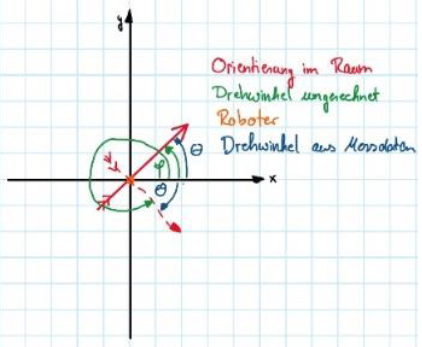 y
Orientierung im Raum
Drehwinkel umgerechnet
Roboter
Drehwinkel aus Messdaten
θ
φ
θ
x